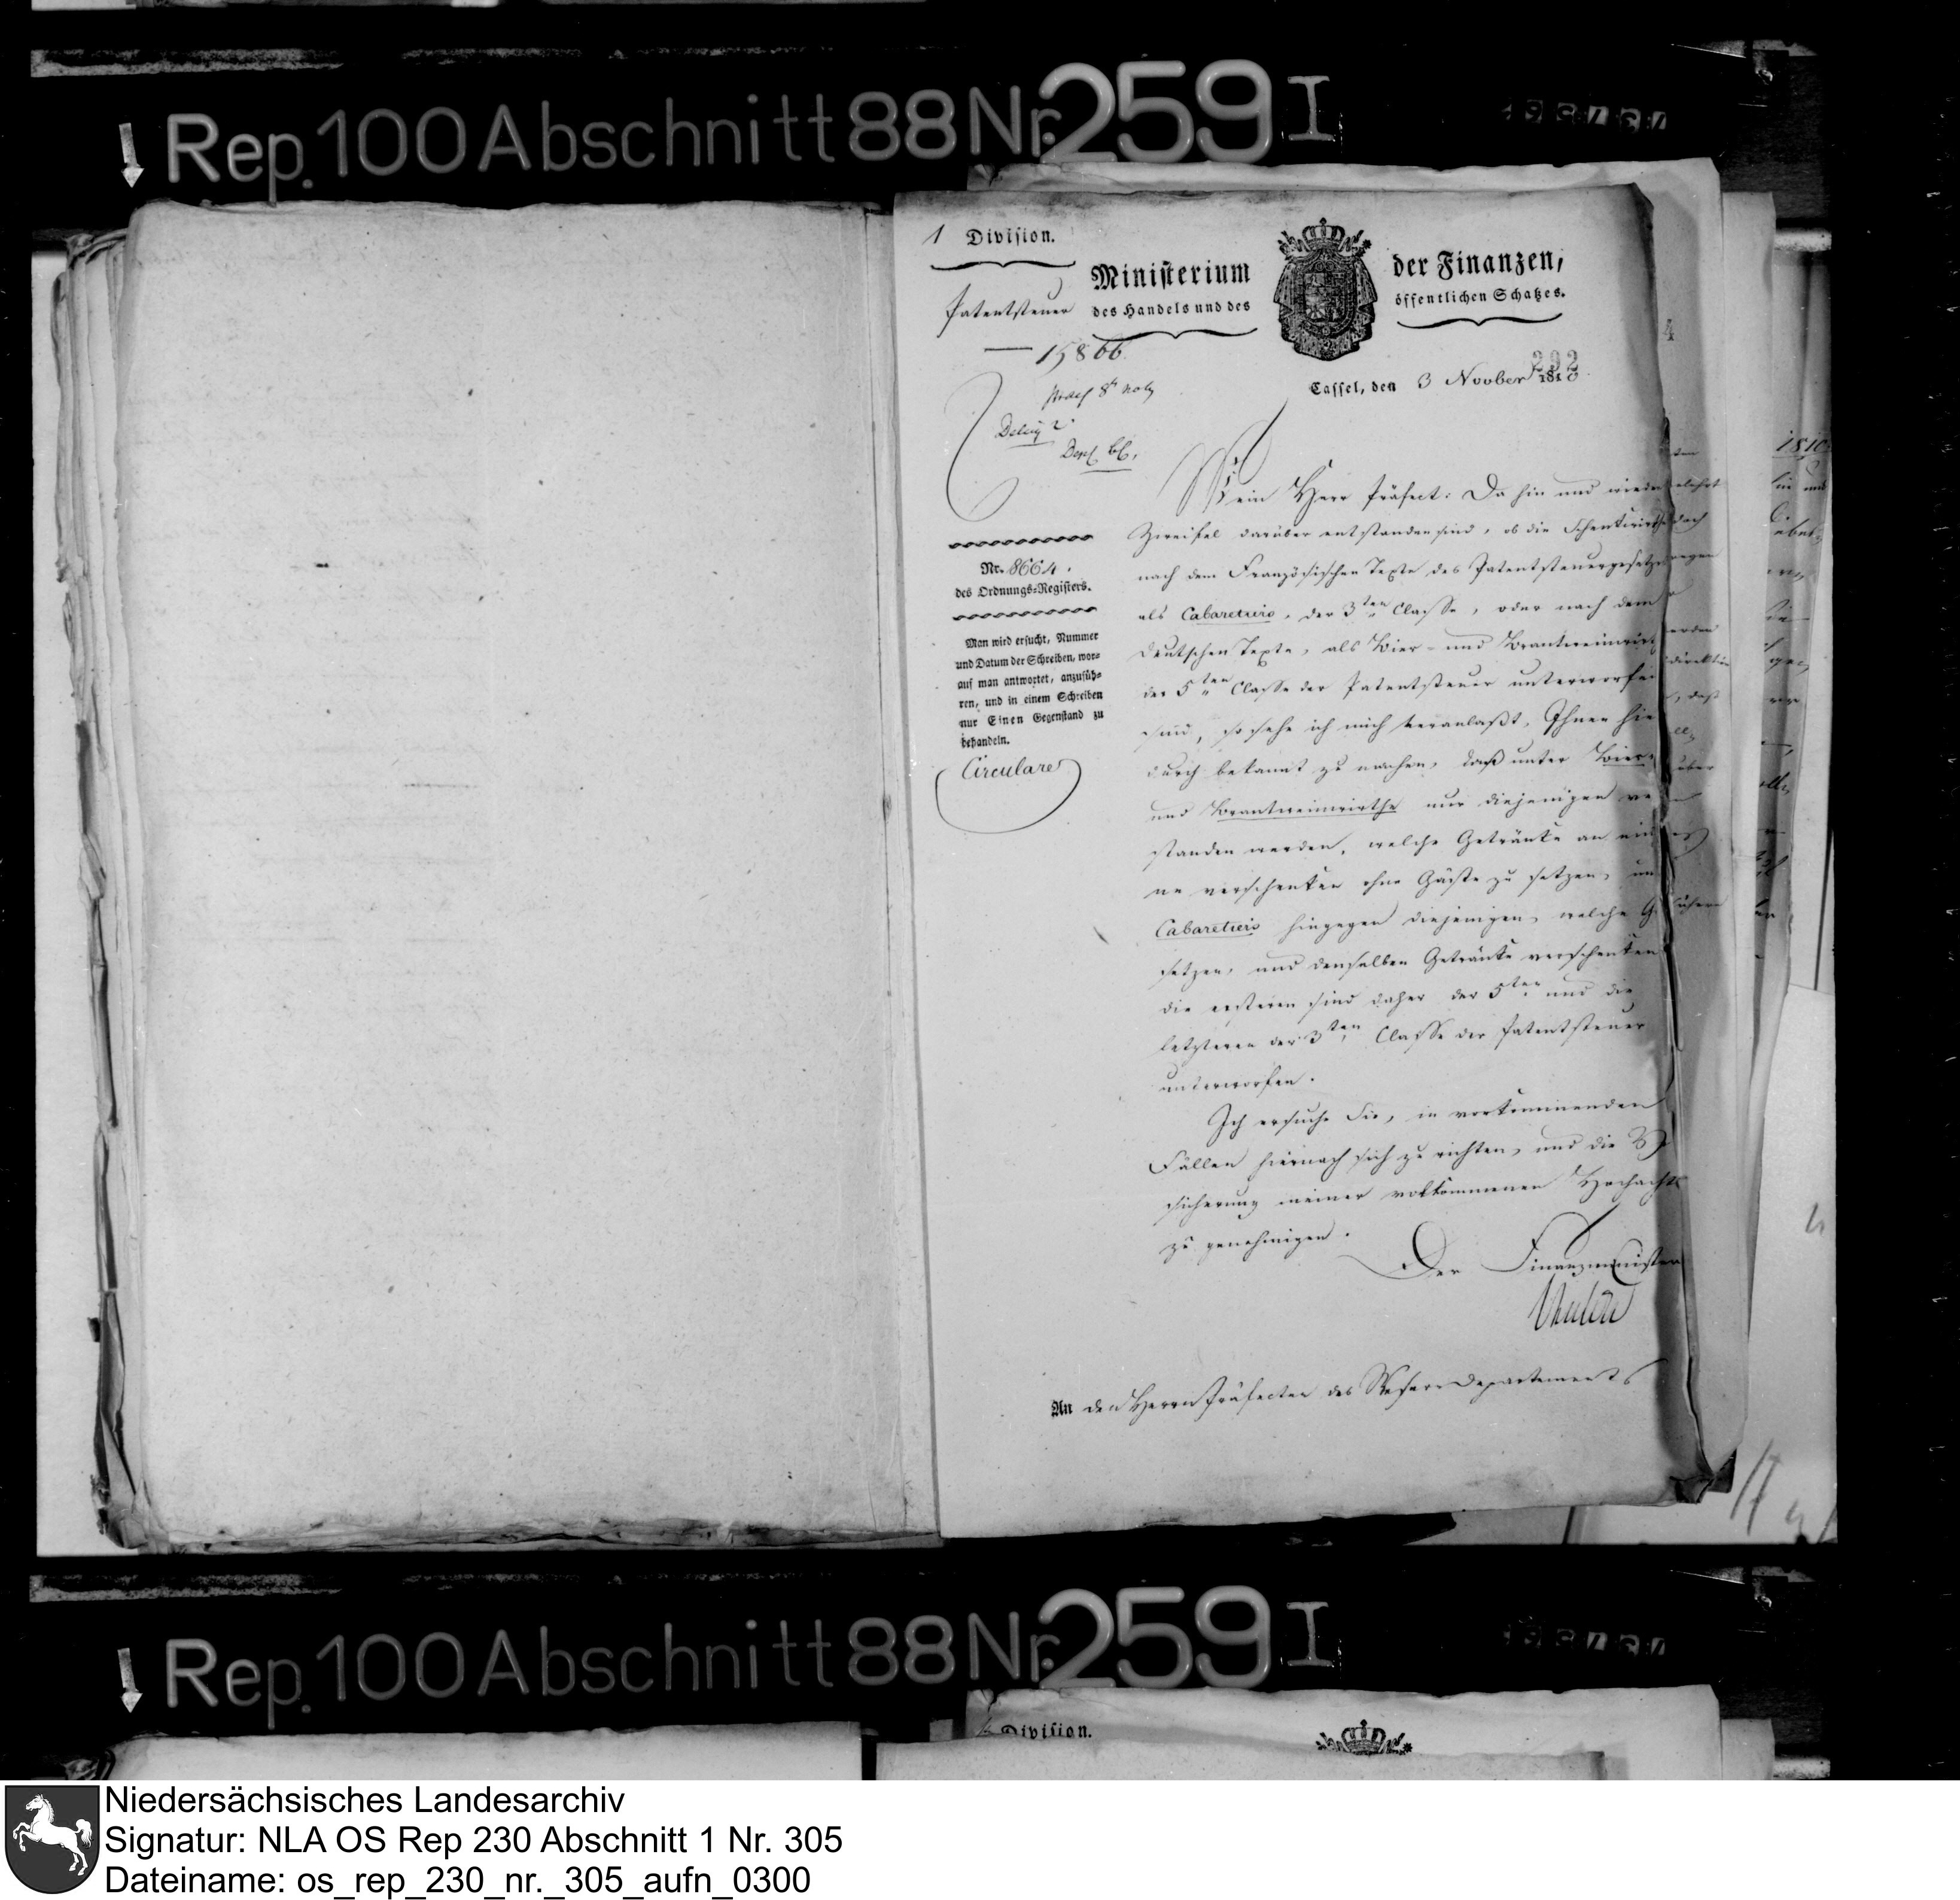 Rep. 100 Abschnitt 88 Nr. 259 I
1 Division.
Ministerium der Finanzen,
des Handels und des öffentlichen Schatzes.
Patentsteuer
15866.
292
Cassel, den 3 Novber 1810
Nr. 8664.
des Ordnungs-Registers.
Man wird ersucht, Nummer
und Datum der Schreiben, wor-
auf man antwortet, anzufüh-
ren, und in einem Schreiben
nur Einen Gegenstand zu
behandeln.
Circulare
Mein Herr Präfect: Da hin und wieder
Zweifel darüber entstanden sind, ob die Schenkwirthe
nach dem Französischen Texte des Patentsteuergesetzes
als Cabaretiers, der 3ten Classe, oder nach dem
deutschen Texte, als Bier- und Brantweinwirthe
der 5ten Classe der Patentsteuer unterworfen
sind, so sehe ich mich veranlaßt, Ihnen hie
durch bekannt zu machen, daß unter Bier-
und Brantweinwirthe nur diejenigen ver
standen werden, welche Getränke an ein
ne verschenken ohne Gäste zu setzen, und
Cabaretiers hingegen diejenigen, welche G
setzen, und denselben Getränke verschenken
die ersteren sind daher der 5ten und die
letzteren der 3ten Classe der Patentsteuer
unterworfen.
Ich ersuche Sie, in vorkommenden
Fällen hiernach sich zu richten, und die Ver
sicherung meiner vollkommenen Hochacht
zu genehmigen.
Der Finanzminister
An den Herrn Präfecten des Weserdepartements
1810
Rep. 100 Abschnitt 88 Nr. 259 I
Division.
Niedersächsisches Landesarchiv
Signatur: NLA OS Rep 230 Abschnitt 1 Nr. 305
Dateiname: os_rep_230_nr._305_aufn_0300